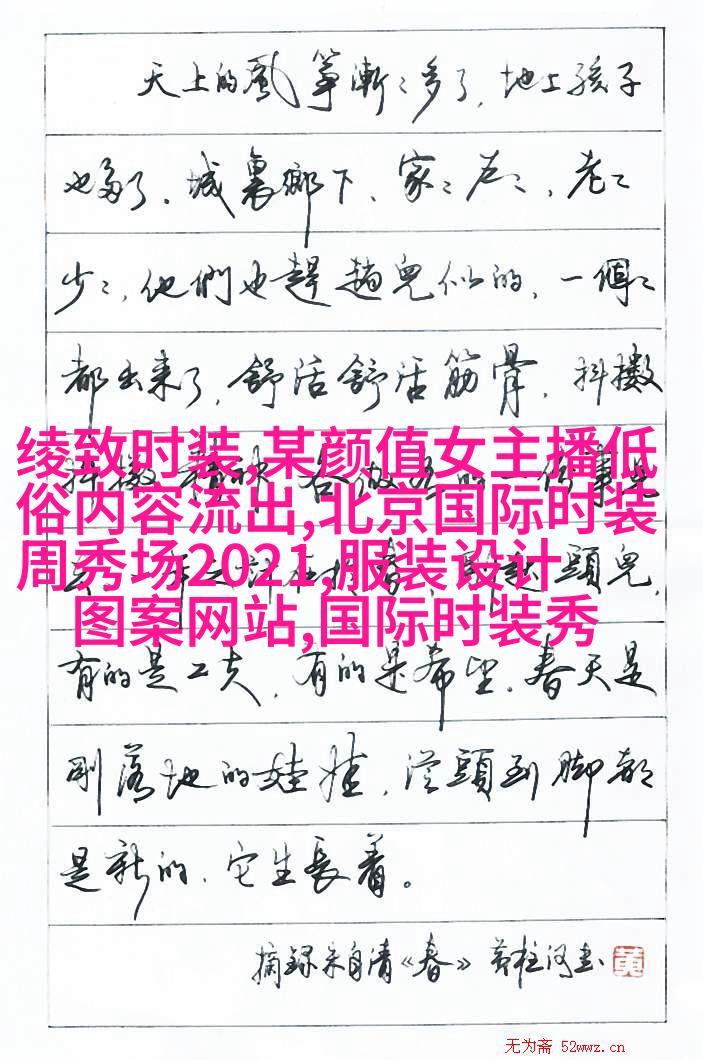 天上的風箏漸〻多了，地上孩子
也多了。城裏鄉下、家〻户〻，老〻
少〻，他們也趕趟兒似的，一個〻
都出来了，舒活舒活筋骨，抖擻
绫致时装,某颜值女主播低
俗内容流出,北京国际时装
周秀场2021,服装设计
图案网站,国际时装秀
頭兒，
有的是工夫，有的是希望。春天是
剛落地的娃娃，從頭到脚都
是新的，它生長着。
摘録朱自清《春》黄柱河書 黄
无为斋 52wwz.cn